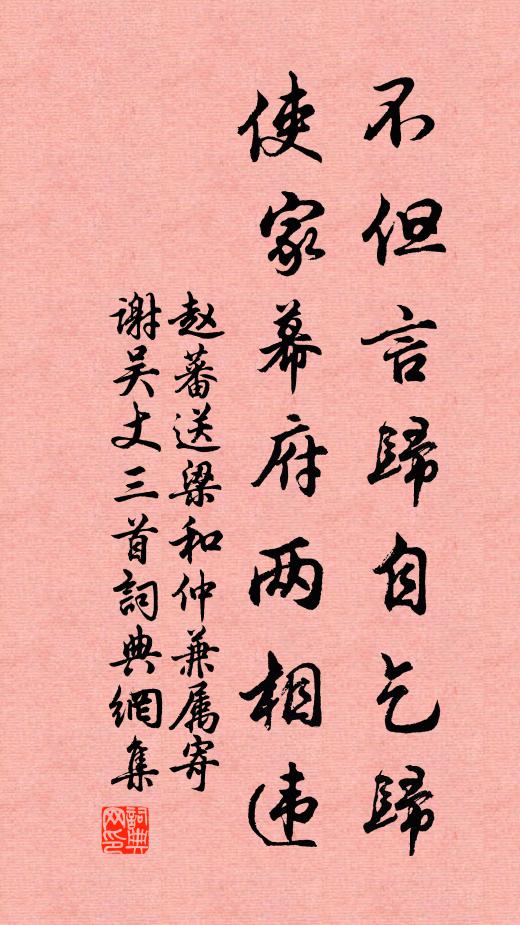 不但言歸自乞歸
使家幕府两相违
赵蕃送梁和仲兼属寄
谢吴丈三首詞典網集
詞典网印